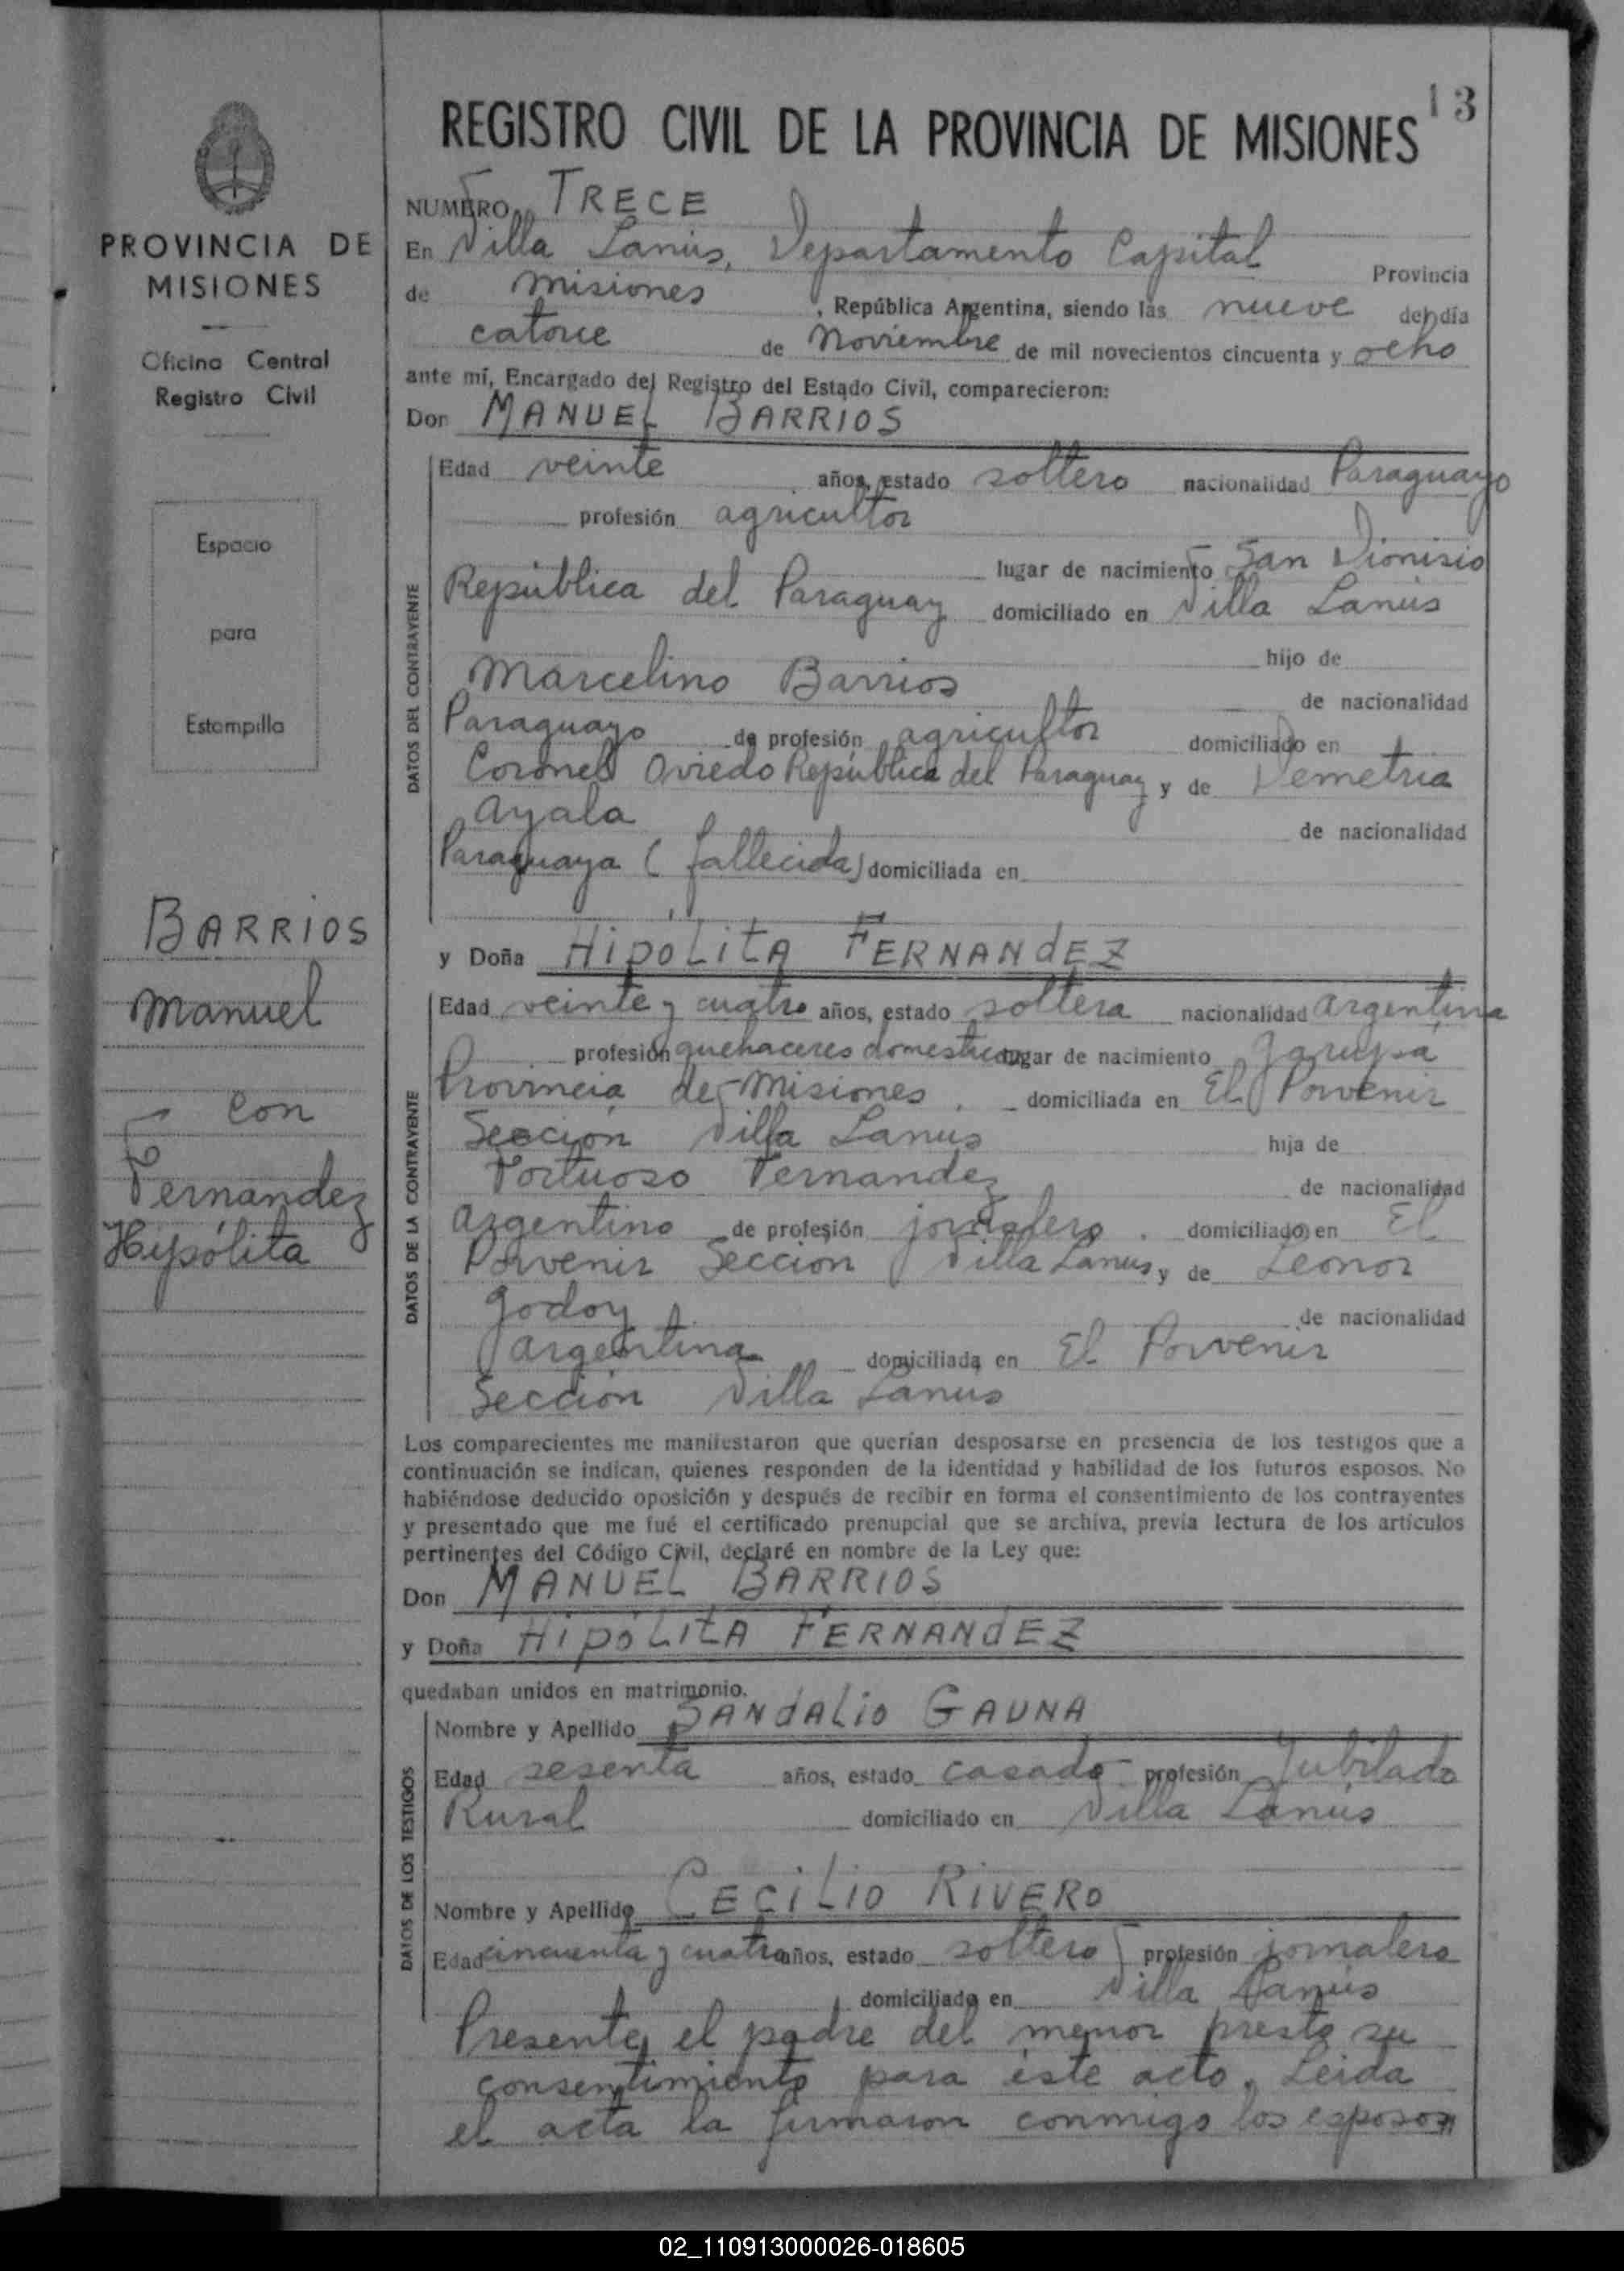 13
REGISTRO CIVIL DE LA PROVINCIA DE MISIONES
PROVINCIA DE
MISIONES
Oficina Central
Registro Civil
Espacio
para
Estampilla
BARRIOS
Manuel
con
Fernandez
Hipólita
NUMERO TRECE
En Villa Lanús, Departamento Capital Provincia
de Misiones, República Argentina, siendo las nueve del día
catorce de Noviembre de mil novecientos cincuenta y ocho
ante mí, Encargado del Registro del Estado Civil, comparecieron:
Don MANUEL BARRIOS
DATOS DEL CONTRAYENTE
Edad veinte años, estado soltero nacionalidad Paraguayo
profesión agricultor
lugar de nacimiento San Dionisio
República del Paraguay domiciliado en Villa Lanús
hijo de
Marcelino Barrios de nacionalidad
Paraguayo de profesión agricultor domiciliado en
Coronel Oviedo República del Paraguay y de Demetria
Ayala de nacionalidad
Paraguaya (fallecida) domiciliada en
y Doña HIPÓLITA FERNANDEZ
DATOS DE LA CONTRAYENTE
Edad veinte y cuatro años, estado soltera nacionalidad argentina
profesión quehaceres domesticos lugar de nacimiento Garupa
Provincia de Misiones. domiciliada en El Porvenir
Sección Villa Lanus hija de
Fortuoso Fernandez de nacionalidad
argentino de profesión jornalero. domiciliado en El
Porvenir Seccion Villa Lanus y de Leonor
Godoy de nacionalidad
argentina domiciliada en El Porvenir
Sección Villa Lanús
Los comparecientes me manifestaron que querían desposarse en presencia de los testigos que a
continuación se indican, quienes responden de la identidad y habilidad de los futuros esposos. No
habiéndose deducido oposición y después de recibir en forma el consentimiento de los contrayentes
y presentado que me fué el certificado prenupcial que se archiva, previa lectura de los artículos
pertinentes del Código Civil, declaré en nombre de la Ley que:
Don MANUEL BARRIOS
y Doña HIPÓLITA FERNANDEZ
quedaban unidos en matrimonio.
DATOS DE LOS TESTIGOS
Nombre y Apellido SANDALIO GAUNA
Edad sesenta años, estado casado profesión Jubilado
Rural domiciliado en Villa Lanús
Nombre y Apellido CECILIO RIVERO
Edad cincuenta y cuatro años, estado soltero profesión jornalero
domiciliado en Villa Lanús
Presente el padre del menor presto su
consentimiento para éste acto. Leida
el acta la firmaron conmigo los esposos
02_110913000026-018605